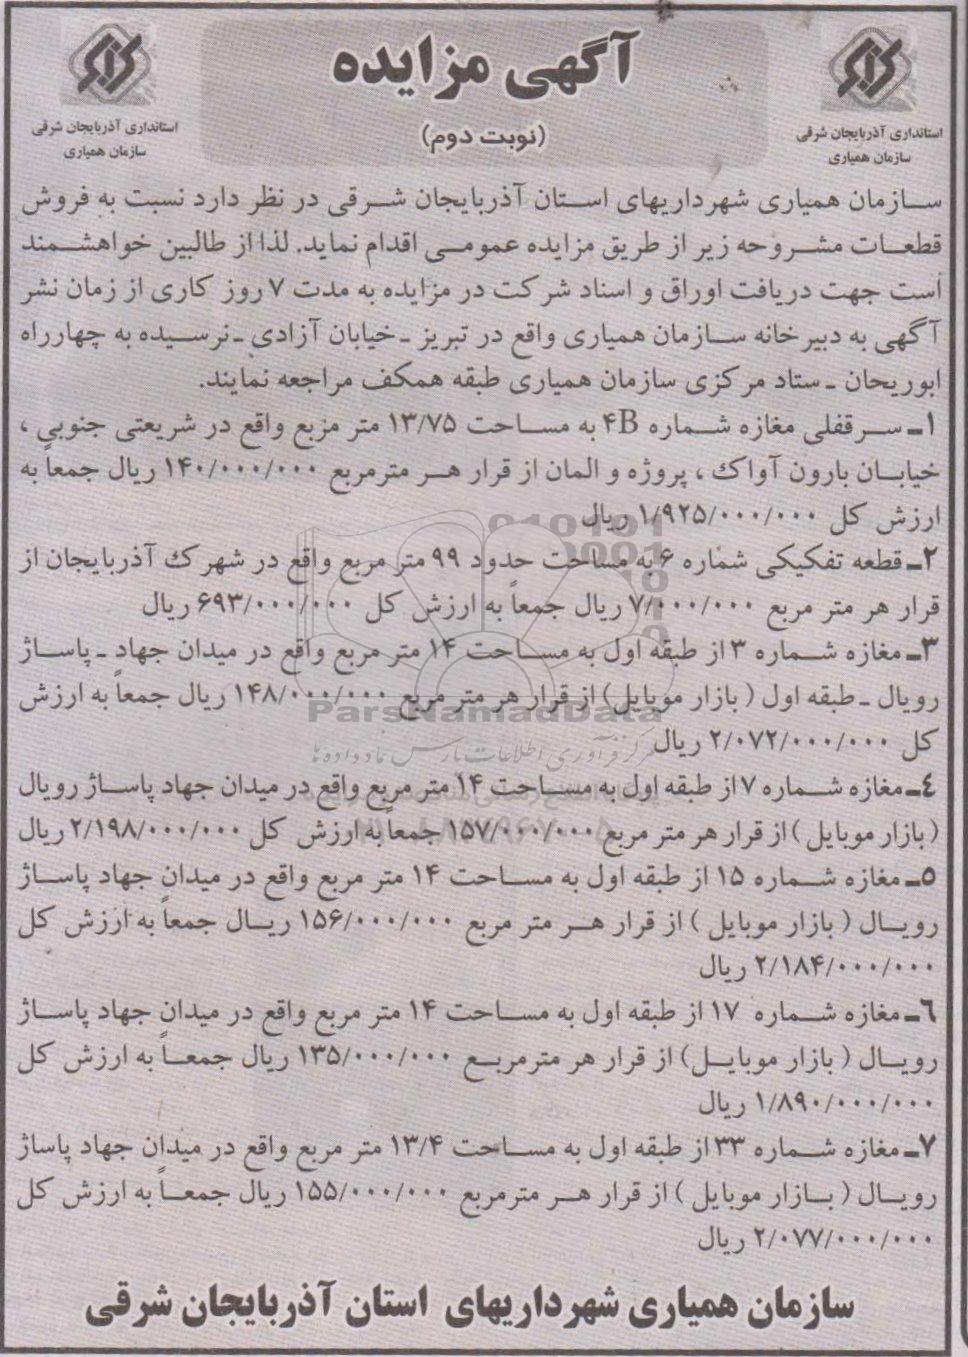 آگهی مزایده
(نوبت دوم)
استانداری آذربایجان شرقی
سازمان همیاری
استانداری آذربایجان شرقی
سازمان همیاری
سازمان همیاری شهرداریهای استان آذربایجان شرقی در نظر دارد نسبت به فروش
قطعات مشروحه زیر از طریق مزایده عمومی اقدام نماید. لذا از طالبین خواهشمند
است جهت دریافت اوراق و اسناد شرکت در مزایده به مدت ۷ روز کاری از زمان نشر
آگهی به دبیرخانه سازمان همیاری واقع در تبریز ـ خیابان آزادی ـ نرسیده به چهارراه
ابوریحان ـ ستاد مرکزی سازمان همیاری طبقه همکف مراجعه نمایند.
۱ـ سرقفلی مغازه شماره ۴B به مساحت ۱۳/۷۵ متر مربع واقع در شریعتی جنوبی ،
خیابان بارون آواک ، پروژه و المان از قرار هر مترمربع ۱۴۰/۰۰۰/۰۰۰ ریال جمعاً به
ارزش کل ۱/۹۲۵/۰۰۰/۰۰۰ ریال
۲ـ قطعه تفکیکی شماره ۶ به مساحت حدود ۹۹ متر مربع واقع در شهرک آذربایجان از
قرار هر متر مربع ۷/۰۰۰/۰۰۰ ریال جمعاً به ارزش کل ۶۹۳/۰۰۰/۰۰۰ ریال
۳ـ مغازه شماره ۳ از طبقه اول به مساحت ۱۴ متر مربع واقع در میدان جهاد ـ پاساژ
رویال ـ طبقه اول ( بازار موبایل) از قرار هر متر مربع ۱۴۸/۰۰۰/۰۰۰ ریال جمعاً به ارزش
کل ۲/۰۷۲/۰۰۰/۰۰۰ ریال
۴ـ مغازه شماره ۷ از طبقه اول به مساحت ۱۴ متر مربع واقع در میدان جهاد پاساژ رویال
( بازار موبایل ) از قرار هر متر مربع ۱۵۷/۰۰۰/۰۰۰ جمعاً به ارزش کل ۲/۱۹۸/۰۰۰/۰۰۰ ریال
۵ـ مغازه شماره ۱۵ از طبقه اول به مساحت ۱۴ متر مربع واقع در میدان جهاد پاساژ
رویال ( بازار موبایل ) از قرار هر متر مربع ۱۵۶/۰۰۰/۰۰۰ ریال جمعاً به ارزش کل
۲/۱۸۴/۰۰۰/۰۰۰ ریال
۶ـ مغازه شماره ۱۷ از طبقه اول به مساحت ۱۴ متر مربع واقع در میدان جهاد پاساژ
رویال ( بازار موبایل) از قرار هر مترمربع ۱۳۵/۰۰۰/۰۰۰ ریال جمعاً به ارزش کل
۱/۸۹۰/۰۰۰/۰۰۰ ریال
۷ـ مغازه شماره ۳۳ از طبقه اول به مساحت ۱۳/۴ متر مربع واقع در میدان جهاد پاساژ
رویال ( بازار موبایل ) از قرار هر مترمربع ۱۵۵/۰۰۰/۰۰۰ ریال جمعاً به ارزش کل
۲/۰۷۷/۰۰۰/۰۰۰ ریال
سازمان همیاری شهرداریهای استان آذربایجان شرقی
ParsNamadData